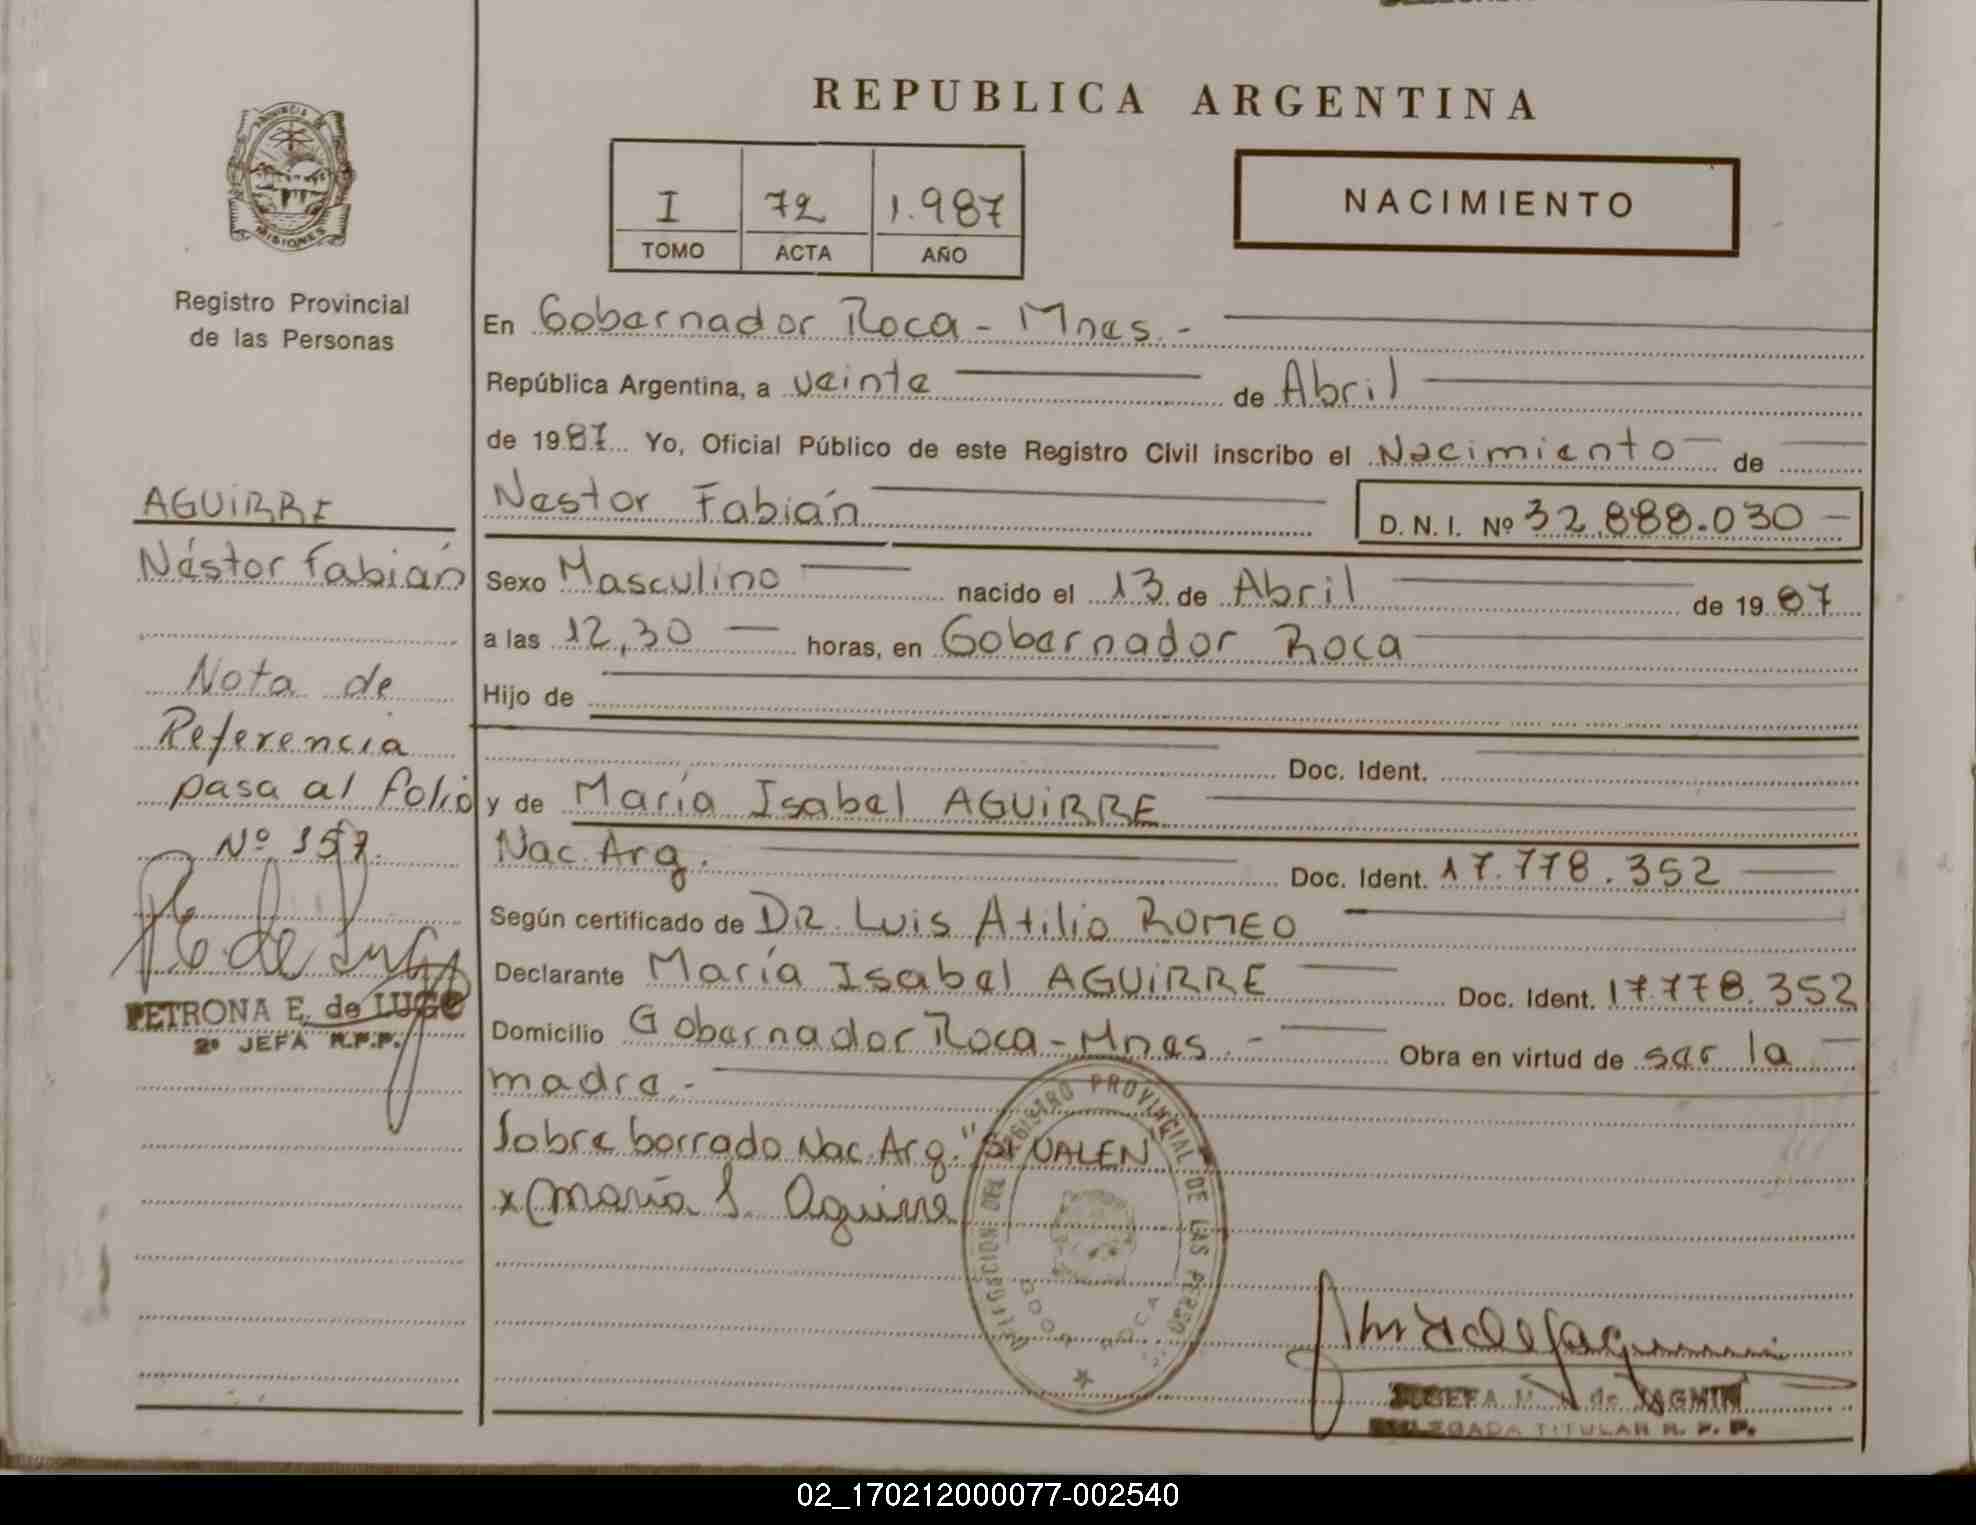 REPUBLICA ARGENTINA
PROVINCIA DE
MISIONES
Registro Provincial
de las Personas
I 72 1.987
TOMO ACTA AÑO
NACIMIENTO
En Gobernador Roca - Mnes. -
República Argentina, a veinte de Abril
de 1987 Yo, Oficial Público de este Registro Civil inscribo el Nacimiento de
Nestor Fabián D.N.I. Nº 32.888.030
Sexo Masculino nacido el 13 de Abril de 1987
a las 12,30 horas, en Gobernador Roca
Hijo de
Doc. Ident.
y de María Isabel AGUiRRE
Nac. Arg. Doc. Ident. 17.778.352
Según certificado de DR. Luis Atilio ROMEO
Declarante María Isabel AGUiRRE Doc. Ident. 17.778.352
Domicilio Gobernador Roca - Mnes. - Obra en virtud de ser la
madre. -
Sobre borrado Nac. Arg. " VALEN
x María I. Aguirre
AGUiRRE
Néstor Fabián
Nota de
Referencia
pasa al folio
Nº 157.
PETRONA E. de LUGO
2ª JEFA R.P.P.
DELEGACION DEL REGISTRO PROVINCIAL DE LAS PERSO
GDOR ROCA
JOSEFA M. de
DELEGADA TITULAR R. P. P.
02_170212000077-002540